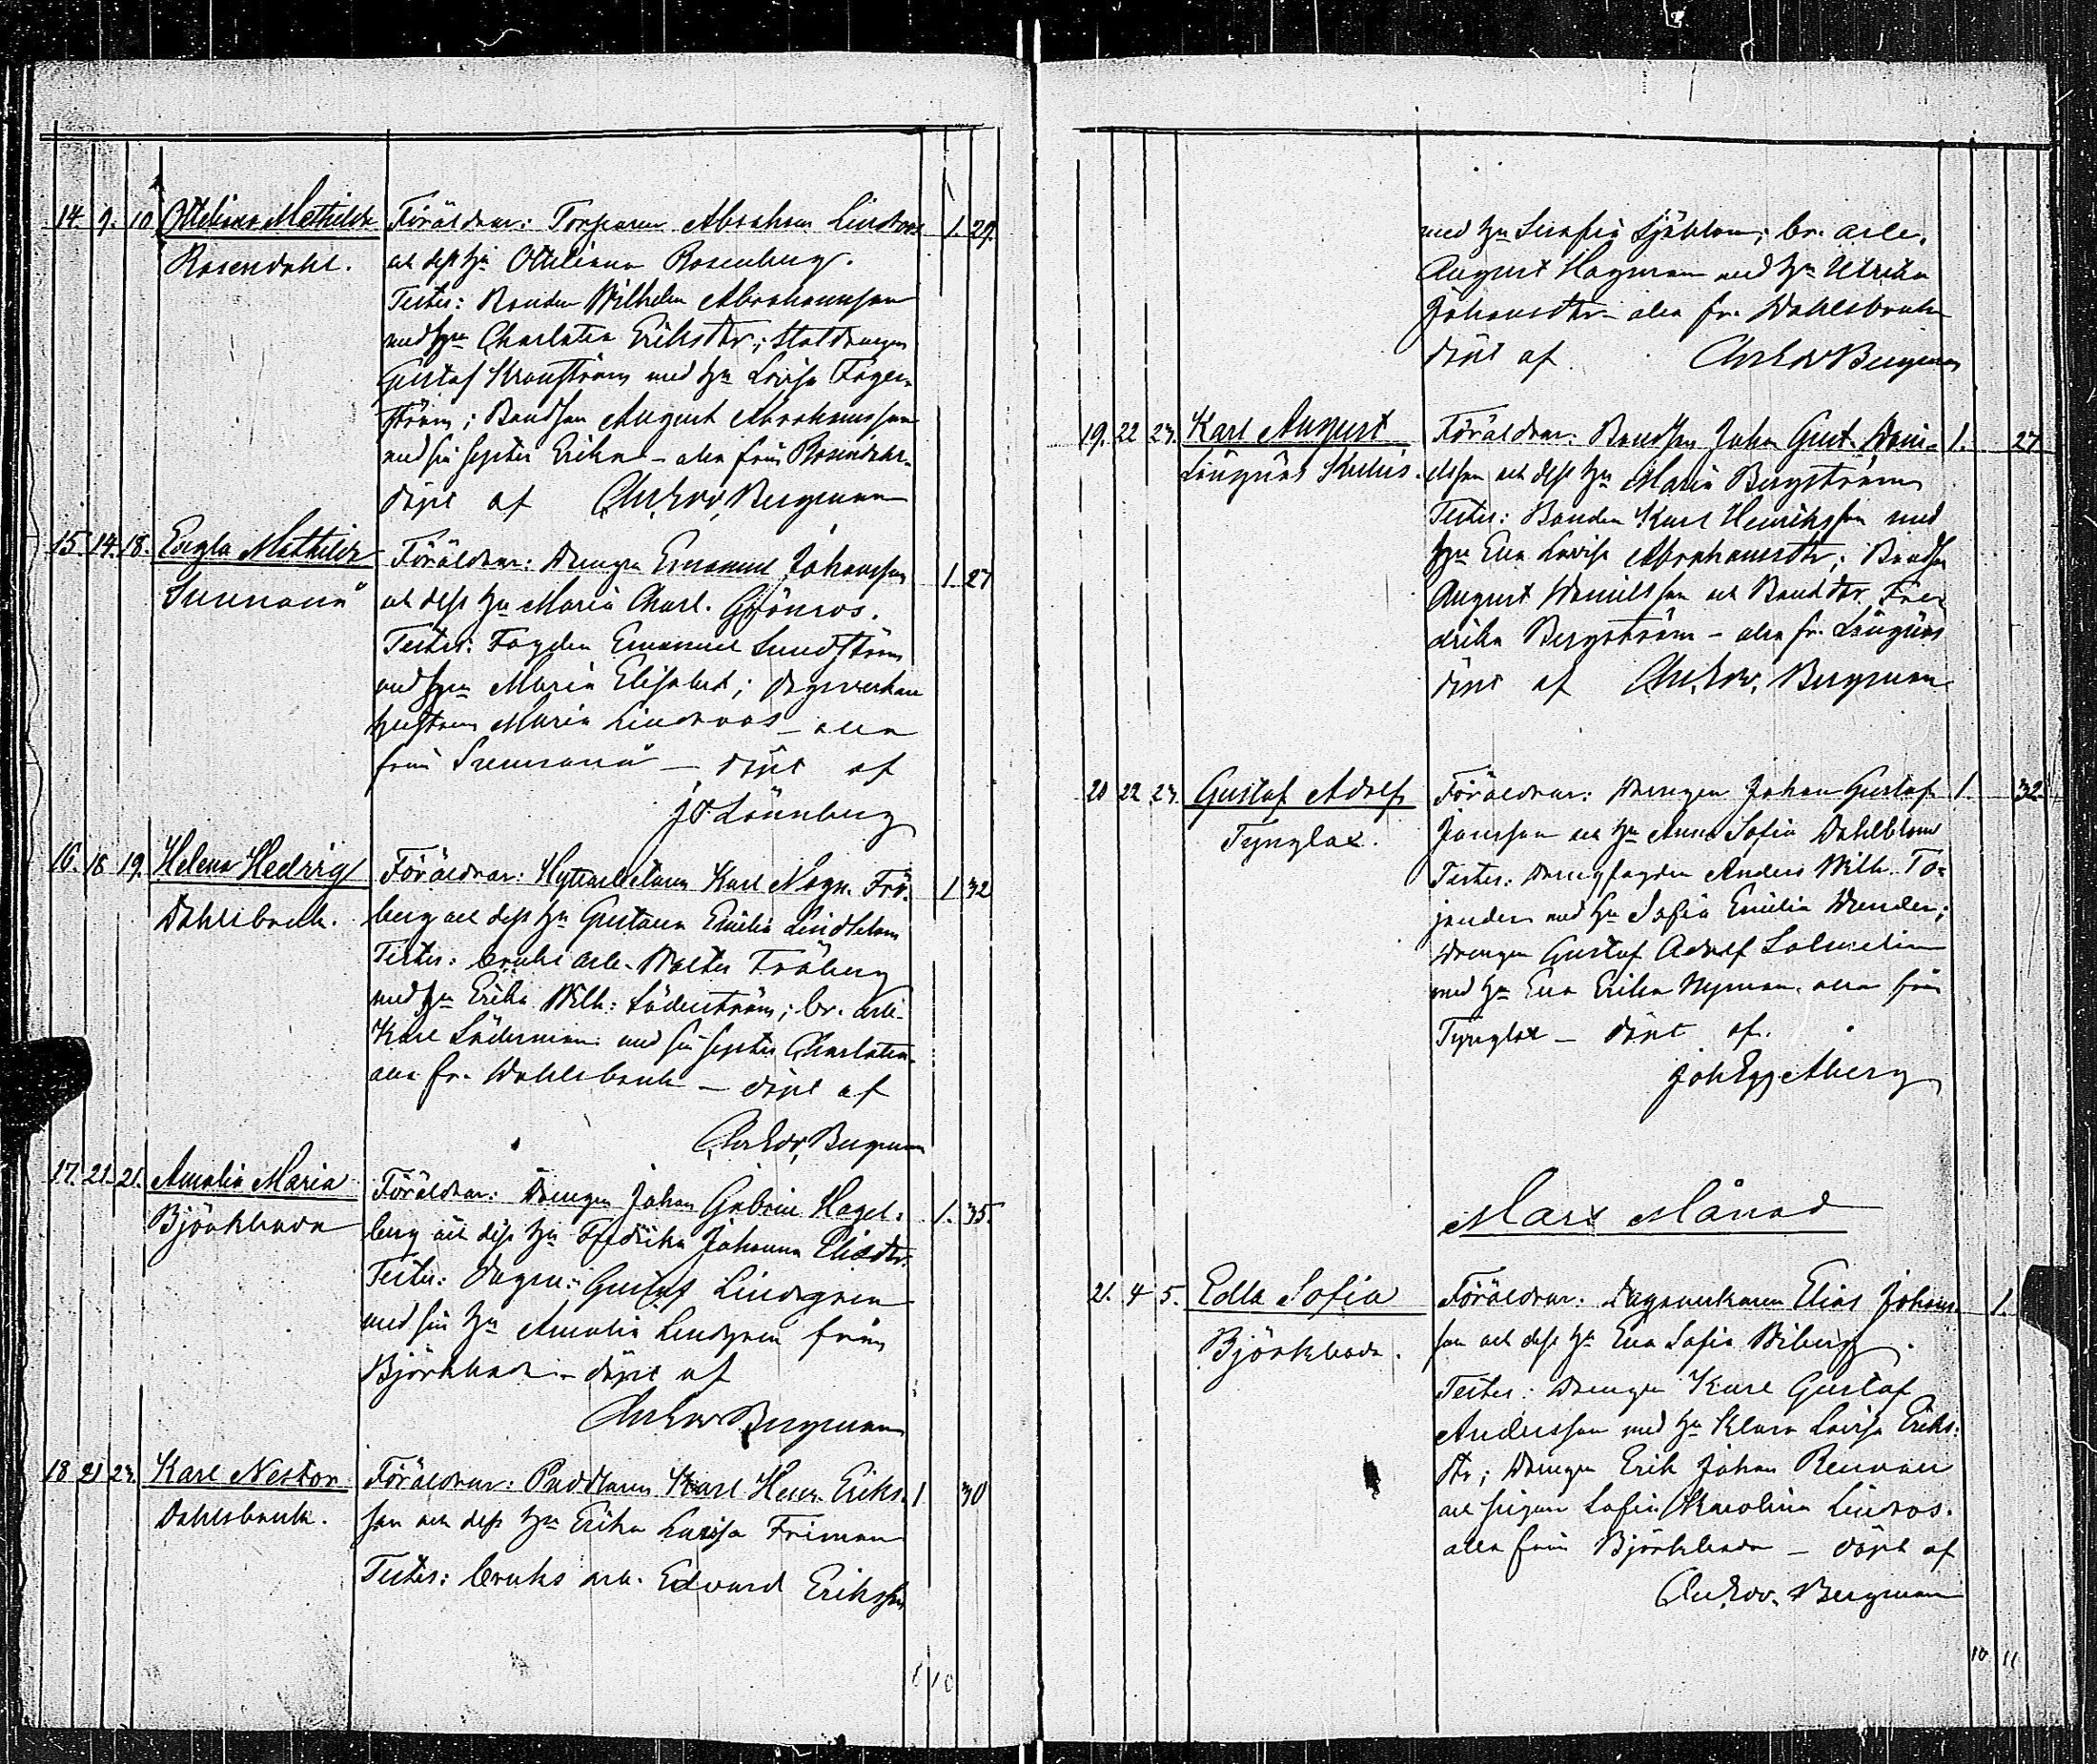 14. 9. 10 Ottiliana Mathilda Föräldrar: Torparen Abraham Lindroos 1. 29.
Rosendahl. och dess hu Ottiliana Rosenberg.
Testes: Bonden Wilhelm Abrahamsson
med hu Charlotta Eriksdtr; Statdrengen
Gustaf Kronström med hu Lovisa Fager-
ström; Bondson August Abrahamsson
med sin syster Erika – alla från Rosendahl.
döpt af Chr. Edv. Bergman
15. 14. 18. Engla Mathilda Föräldrar: Drengen Emanuel Johansson 1. 27
och dess hu Maria Charl. Grönroos.
Testes: Fogden Emanuel Sundström
med hu Maria Elisabet; dagsverkare
hustrun Maria Lindroos – alla
från – döpt af
Lönnberg
16. 18 19. Helena Hedvig Föräldrar: Karl Magn. Frö- 1 32
Dahlsbruk. berg och dess hu Gustava Emilia Lindblom
Testes: bruks arb. Walter Fröberg
med hu Erika Wilh: Söderström; br. arb.
Karl Söderman med sin syster Charlotta
alla fr. Dahlsbruk – döpt af
Chr. Edv. Bergman
17. 21. 21. Amalia Maria Föräldrar: Drengen Johan Gabriel Hagel- 1. 35.
Björkboda berg och dess hu Fredrika Johanna Elisdtr.
Testes: Dagsv: Gustaf Lindgren
med sin hu Amalia Lindgren från
Björkboda – döpt af
Chr Edv Bergman
18 21 23. Karl Nestor Föräldrar: Puddlaren Karl Henr. Eriks- 1 30
Dahlsbruk. son och dess hu Erika Lovisa Friman
Testes: bruks arb. Edvard Eriksson
med hu Serafia Sjöblom; br. arb.
August Hagman med hu Ulrika
Johansdtr – alla fr. Dahlsbruk
döpt af Chr Edv Bergman
19. 22 23. Karl August Föräldrar: Bondson Johan Gust. Dani- 1. 27
Långnäs elsson och dess hu Maria Bergström
Testes: Bonden Karl Henriksson med
hu Eva Lovisa Abrahamsdtr; Bondson
August Danielsson och Bonddtr Fre-
drika Bergström – alla fr. Långnäs
döpt af Chr. Edv. Bergman
20 22 23. Gustaf Adolf Föräldrar: Drengen Johan Gustaf 1. 32.
Tynglax. Jansson och hu Anna Sofia Dahlblom
Testes: Drengfogden Anders Wilh. To-
jander med hu Sofia Emilia
Drengen Gustaf Adolf Salmelin
med hu Eva Erika Nyman, alla från
Tynglax – döpt af.
Joh Åberg
Mars Månad
21. 4 5. Edla Sofia Föräldrar: Dagsverkaren Elias Johans- 1.
Björkboda. son och dess hu Eva Sofia Wiberg.
Testes: Drengen Karl Gustaf
Andersson med hu Klara Lovisa Eriks-
dtr; Drengen Erik Johan
och pigan Sofia Karolina Lindroos.
alla från Björkboda – döpt af
Chr. Edv. Bergman
10 11